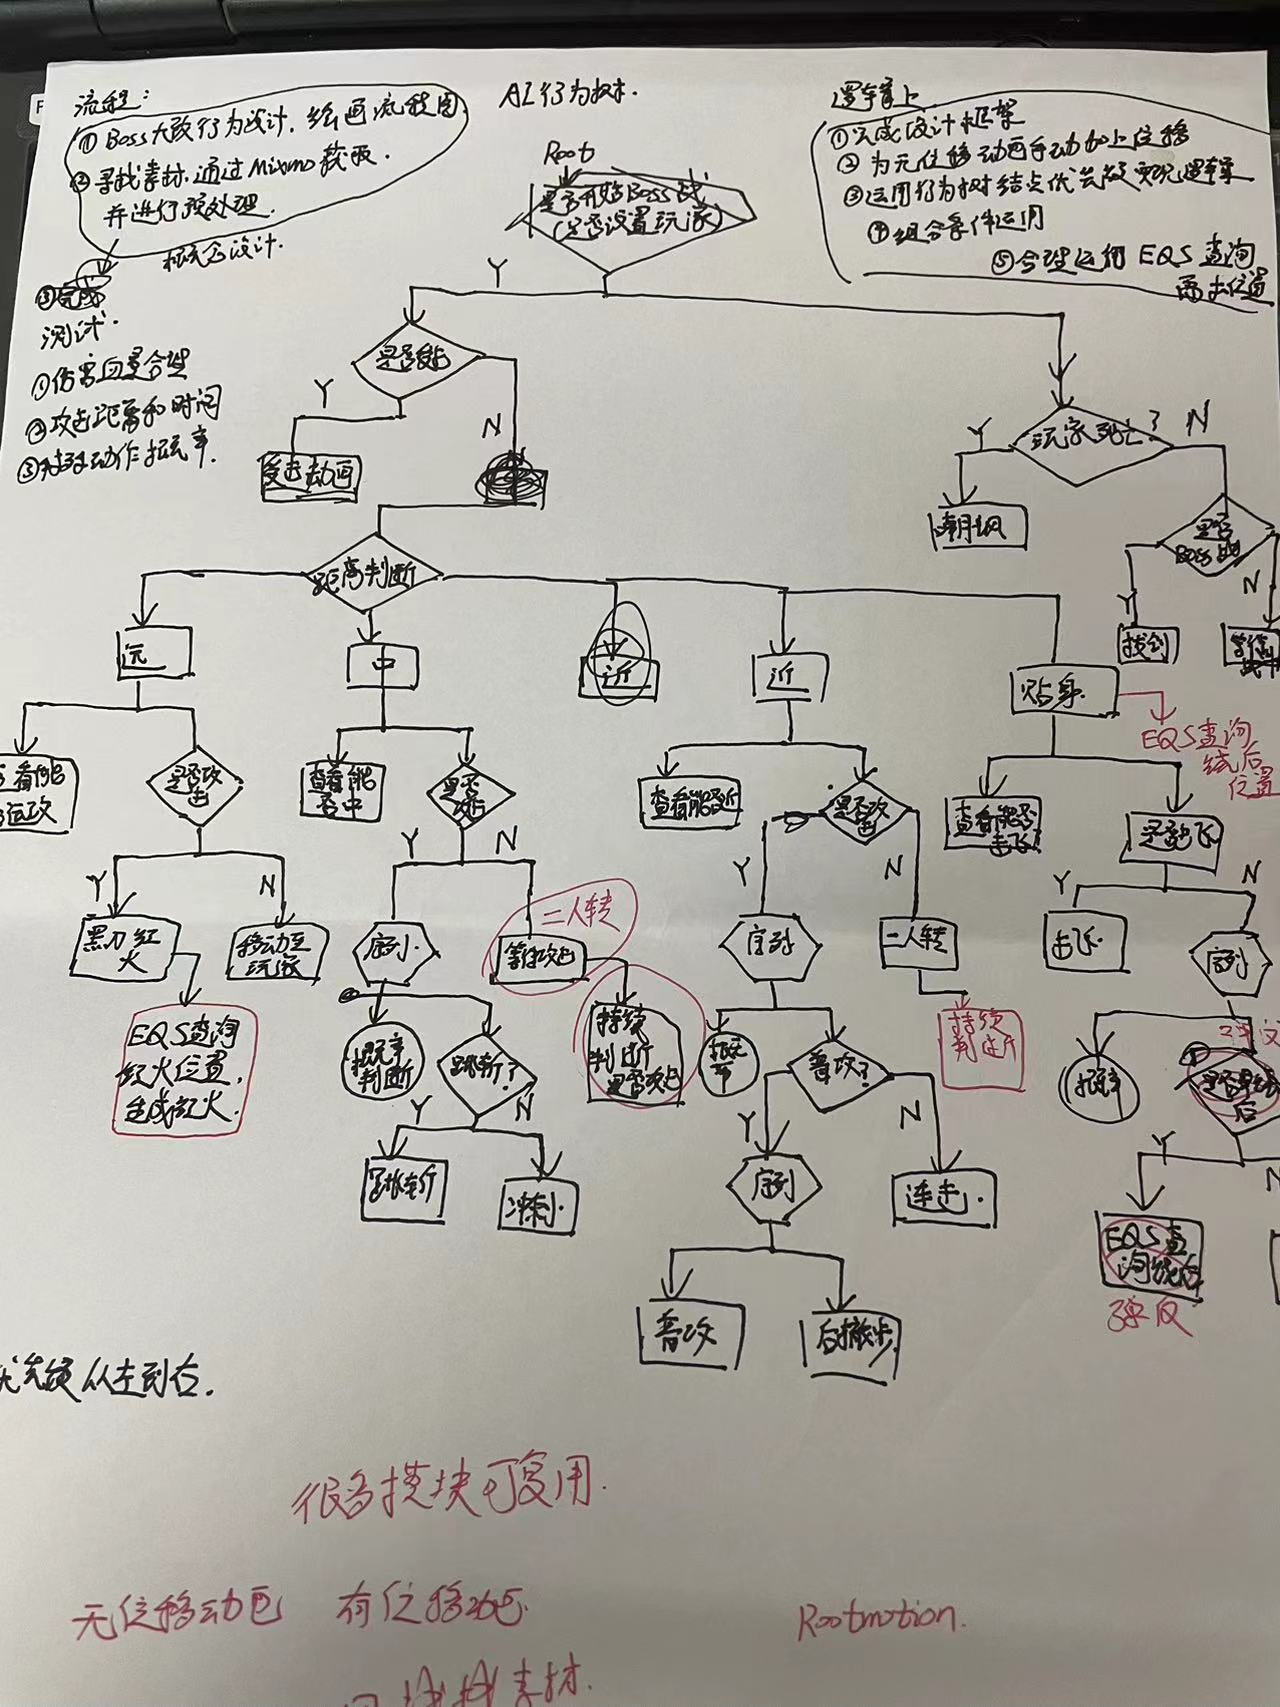 流程：
① Boss大致行为设计，绘画流程图
② 寻找素材，通过Mixmo获取．
并进行预处理．
概念设计．
③完成
测试．
①伤害血量合理
②攻击距离和时间
③动作概率．
AI行为树．
逻辑上
①完成设计框架
②为无位移动画手动加上位移
③运用行为树结点优先级实现逻辑
④组合条件运用
⑤合理运用EQS查询
位置
Root
是否开始Boss战
(是否设置玩家)
Y
是否受击
Y
N
受击动画
玩家死亡？
Y
N
嘲讽
是否
Boss战
Y
N
找到
距离判断
远
中
近
近
贴身
EQS查询
绕后
位置
看能
远攻
是否攻
击
查看能
否中
是否
攻击
查看能否近
是否攻
击
查看能否
击飞
是否击飞
Y
N
Y
N
Y
N
Y
N
黑刀红
火
移动至
玩家
序列
二人转
等待攻击
序列
二人转
击飞
序列
EQS查询
红火位置，
生成红火．
概率
判断
跳斩？
持续
判断
是否攻击
概率
普攻？
持续
判断
概率
是否
后
Y
N
Y
N
Y
N
跳斩
冲刺
序列
连击．
EQS查
询绕后
弹反
普攻
后撤步
优先级从左到右．
很多模块可复用．
无位移动画
有位移动画
Rootmotion.
找素材．